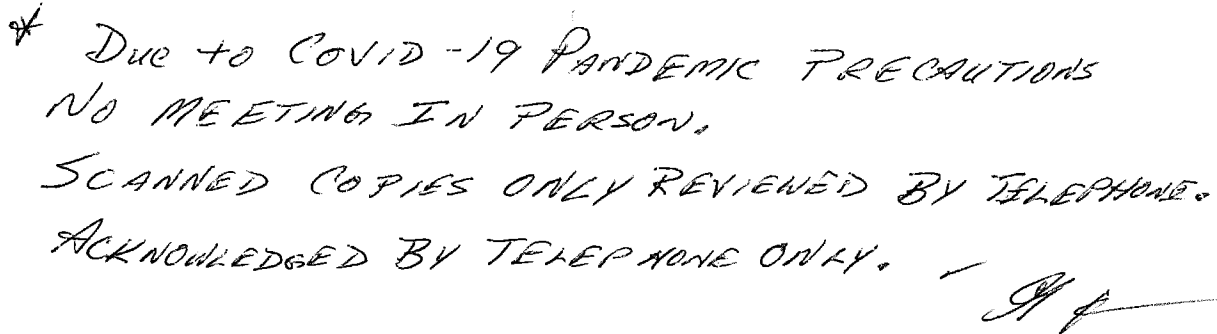 * Due to COVID-19 PANDEMIC PRECAUTIONS
NO MEETING IN PERSON.
SCANNED COPIES ONLY REVIEWED BY TELEPHONE.
ACKNOWLEDGED BY TELEPHONE ONLY. -